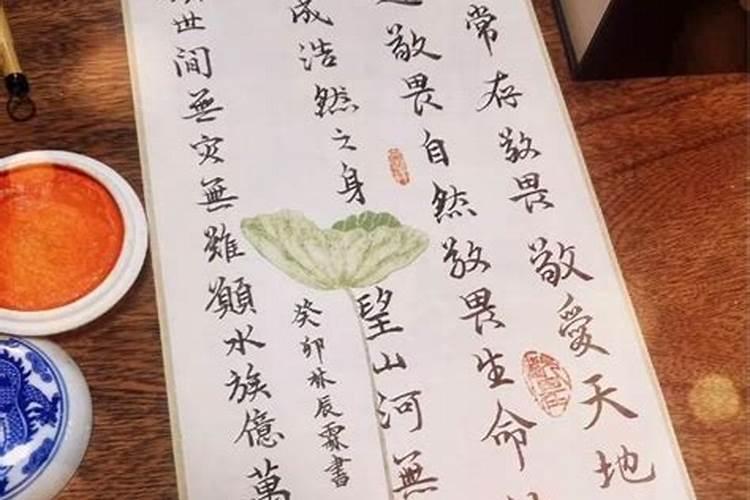 常存敬畏敬愛天地
敬畏自然敬畏生命
成浩然之身望山河無
世間無灾無難願水族億萬
癸卯林辰霖書